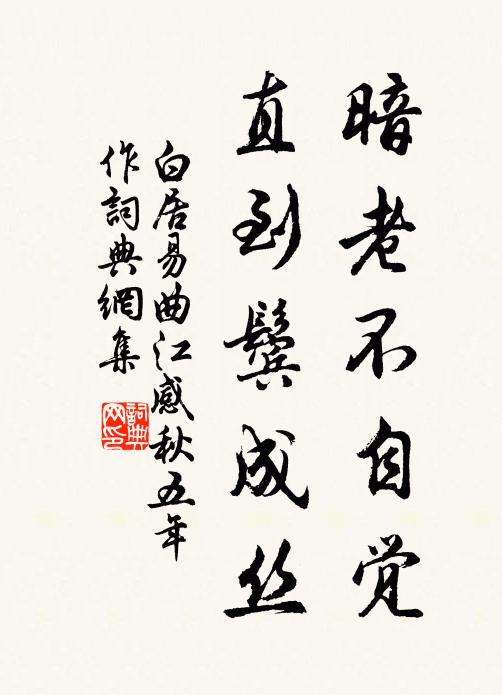 暗老不自觉
直到鬓成丝
白居易曲江感秋五年
作詞典網集
詞典网印